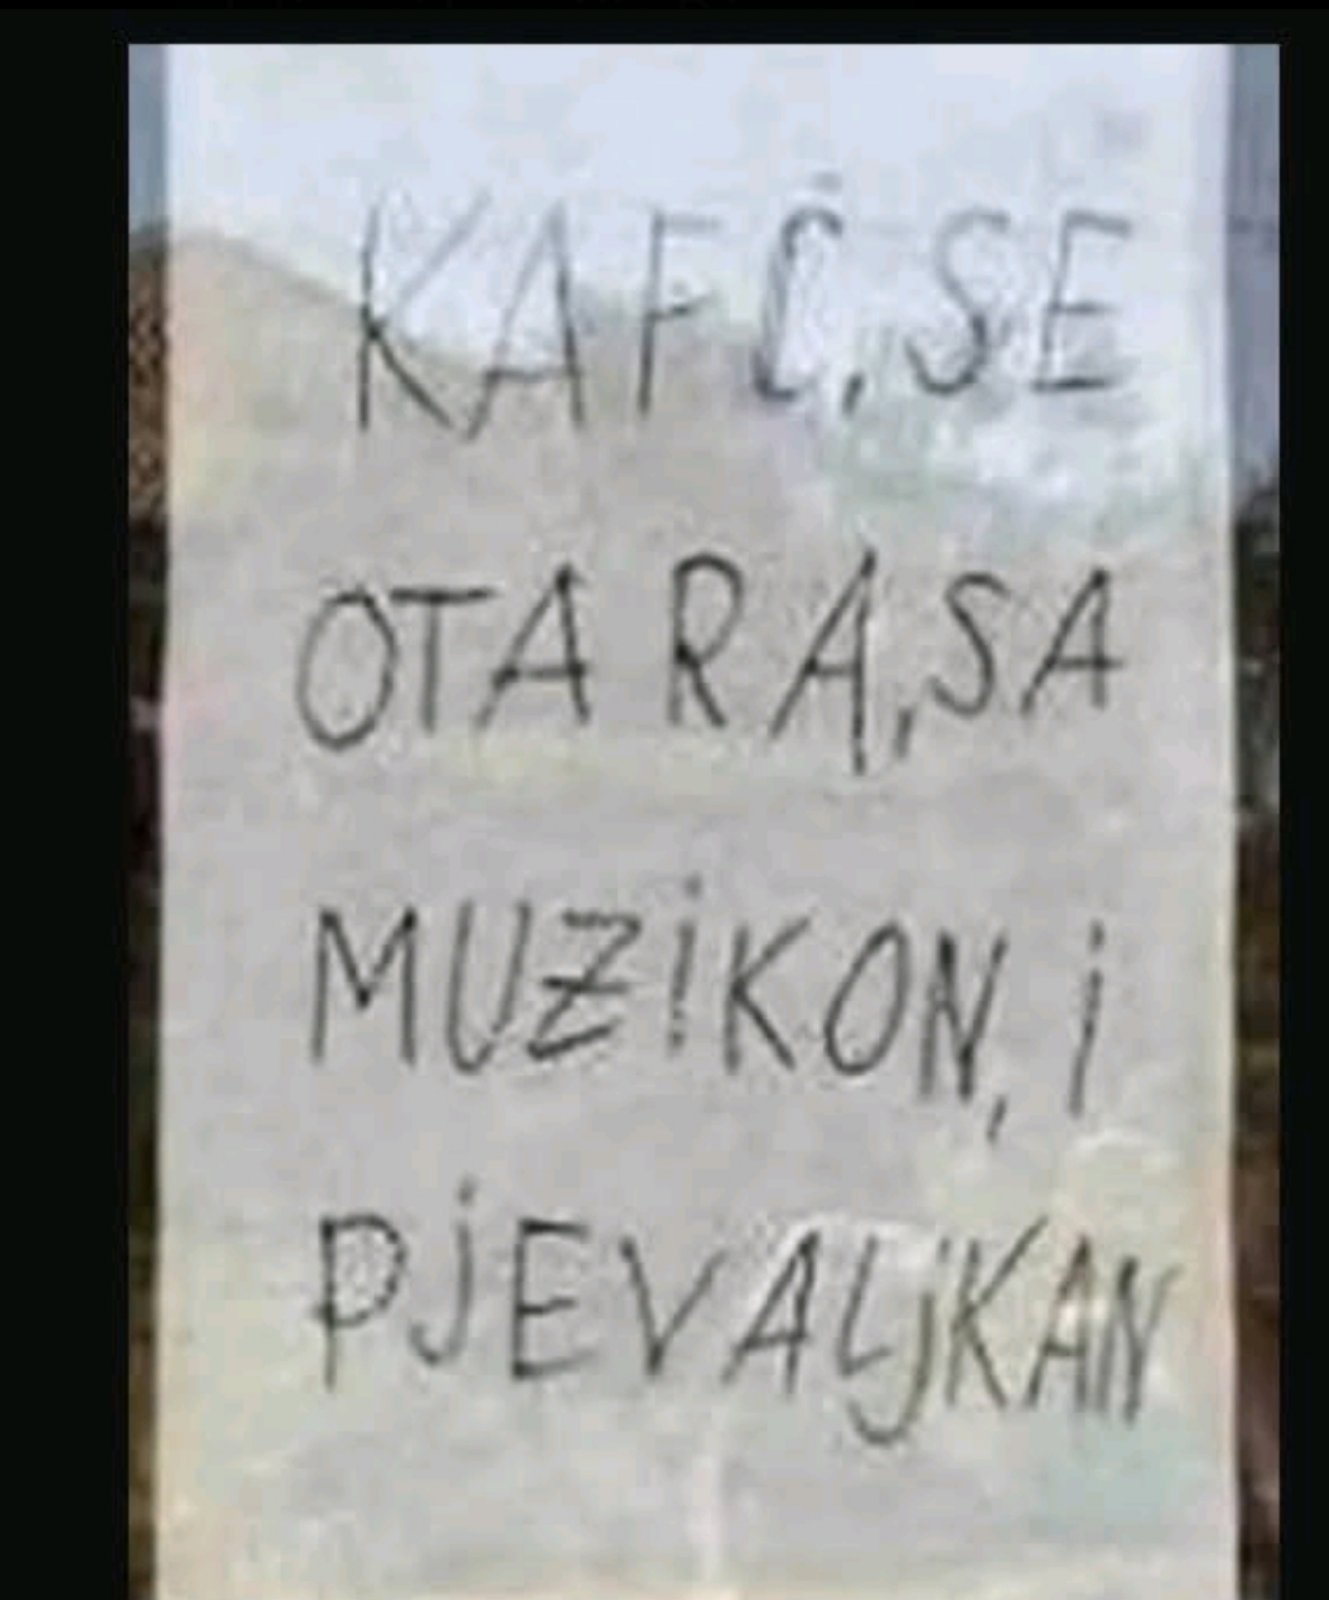 KAFČ, SE
OTA RA, SA
MUZiKON, i
PjEVALjKAN